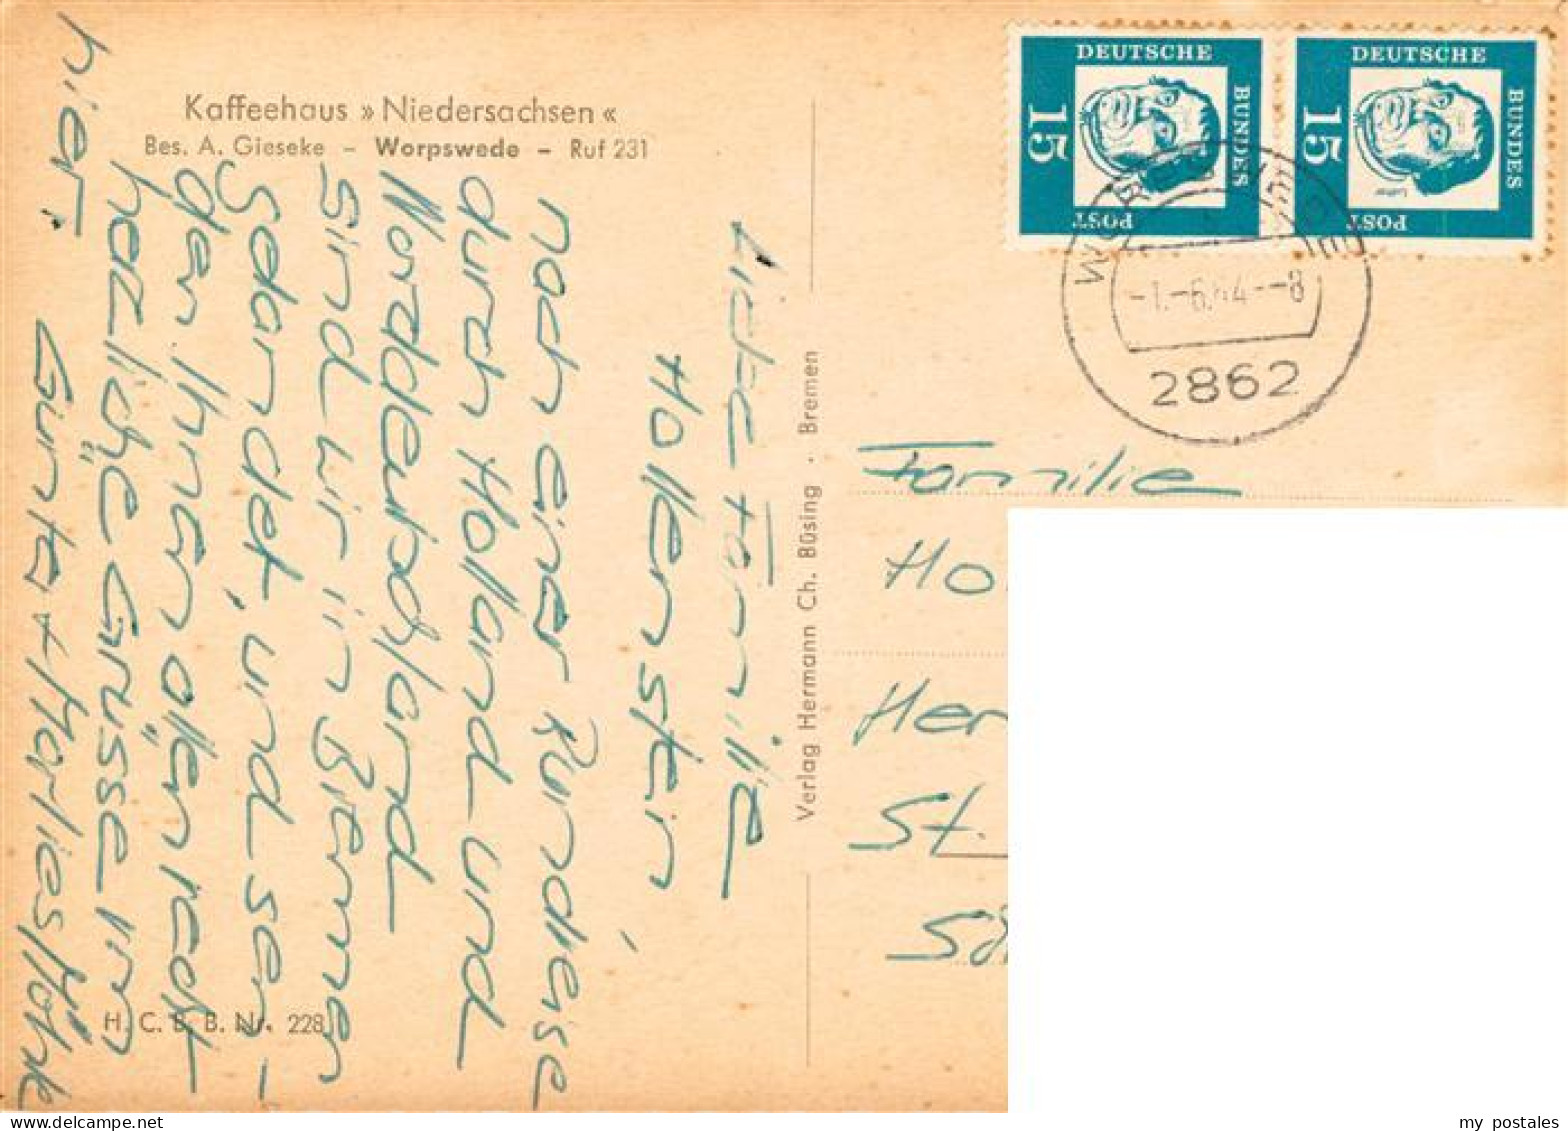 Kaffeehaus » Niedersachsen «
Bes. A. Gieseke – Worpswede – Ruf 231
Liebe Familie
Hollenstein,
nach einer Rundreise
durch Holland und
Norddeutschland
sind wir in Bremen
gelandet, und sen-
den Ihnen allen recht
herzliche Grüsse von
hier.
Günter + Marlies
H. C. B. B. Nr. 228
Verlag Hermann Ch. Büsing · Bremen
DEUTSCHE
BUNDES
POST
15
DEUTSCHE
BUNDES
POST
15
Luther
WORPSWEDE
-1.-6.64--8
2862
Familie
Ho
Her
St.
my postales